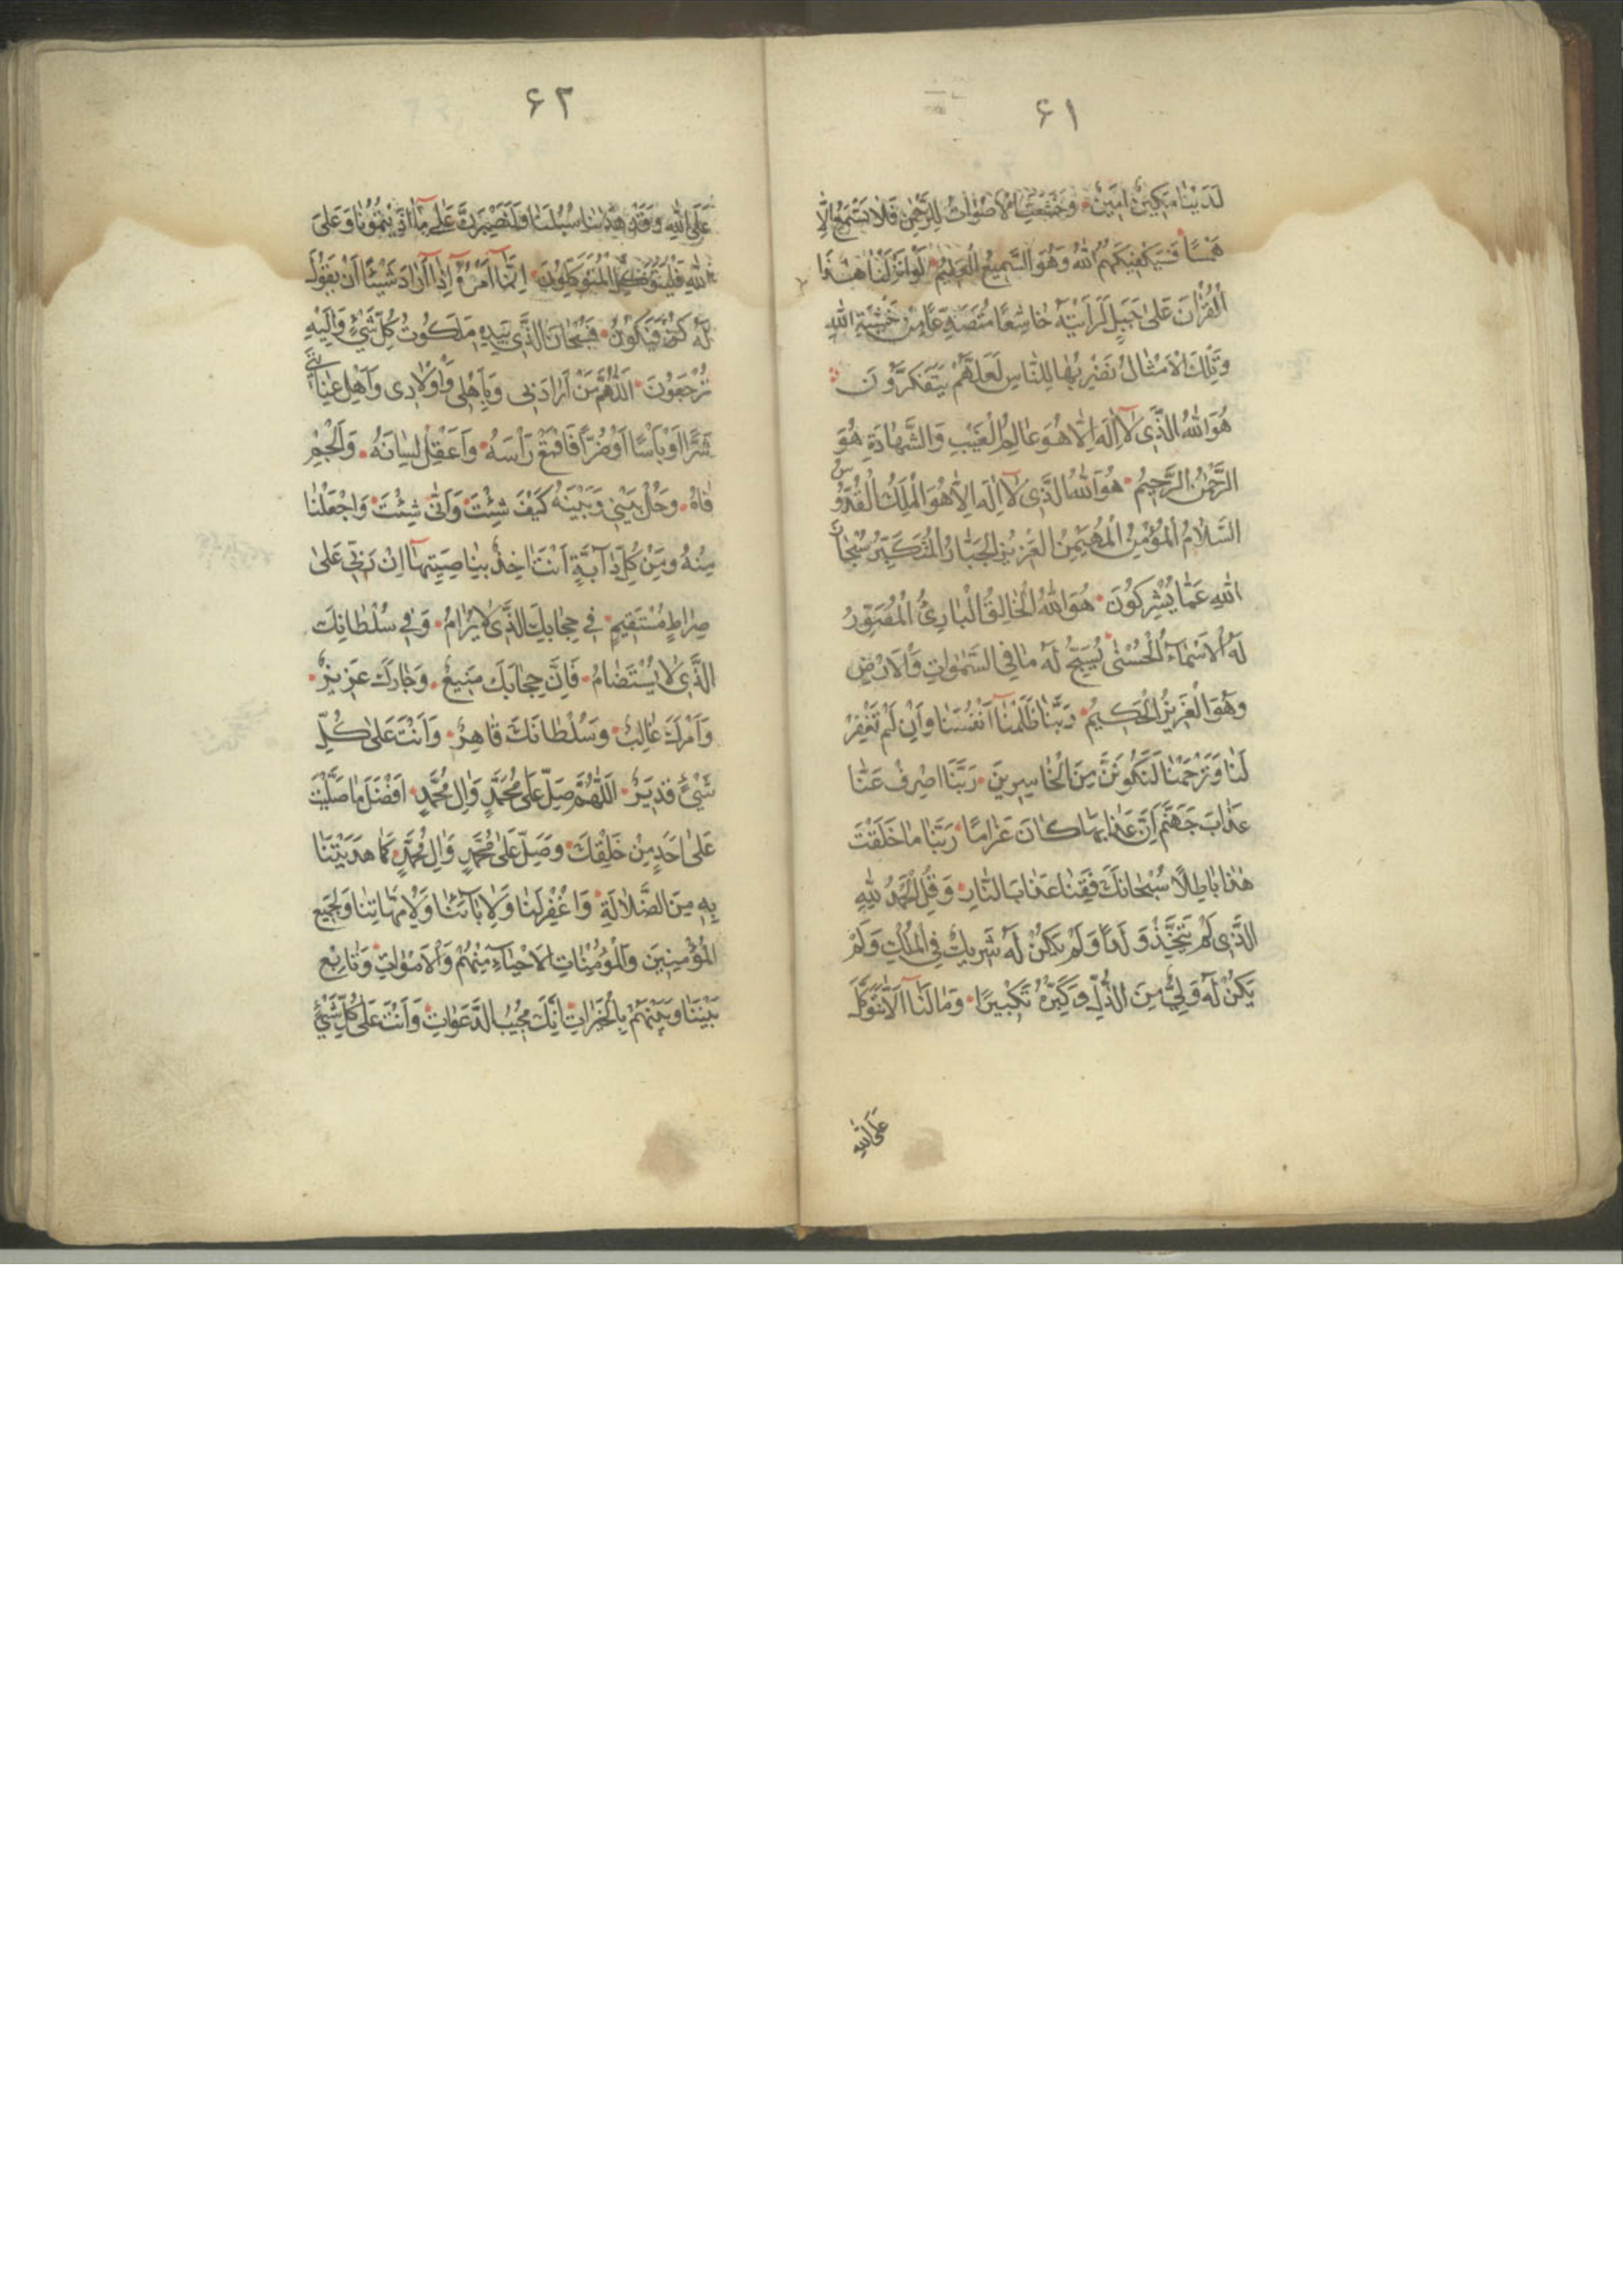 ۶۱
لَدَيْنَا مَكِينٌ اَمِينٌ وَخَشَعَتِ الْاَصْوَاتُ لِلرَّحْمٰنِ فَلَا تَسْمَعُ اِلَّا
هَمْسًا فَسَيَكْفِيكَهُمُ اللّٰهُ وَهُوَ السَّمِيعُ الْعَلِيمُ لَوْ اَنْزَلْنَا هٰذَا
الْقُرْاٰنَ عَلٰى جَبَلٍ لَرَاَيْتَهُ خَاشِعًا مُتَصَدِّعًا مِنْ خَشْيَةِ اللّٰهِ
وَتِلْكَ الْاَمْثَالُ نَضْرِبُهَا لِلنَّاسِ لَعَلَّهُمْ يَتَفَكَّرُونَ
هُوَ اللّٰهُ الَّذِى لَا اِلٰهَ اِلَّا هُوَ عَالِمُ الْغَيْبِ وَالشَّهَادَةِ هُوَ
الرَّحْمٰنُ الرَّحِيمُ هُوَ اللّٰهُ الَّذِى لَا اِلٰهَ اِلَّا هُوَ الْمَلِكُ الْقُدُّوسُ
السَّلَامُ الْمُؤْمِنُ الْمُهَيْمِنُ الْعَزِيزُ الْجَبَّارُ الْمُتَكَبِّرُ سُبْحَانَ
اللّٰهِ عَمَّا يُشْرِكُونَ هُوَ اللّٰهُ الْخَالِقُ الْبَارِئُ الْمُصَوِّرُ
لَهُ الْاَسْمَاءُ الْحُسْنٰى يُسَبِّحُ لَهُ مَا فِى السَّمٰوَاتِ وَالْاَرْضِ
وَهُوَ الْعَزِيزُ الْحَكِيمُ رَبَّنَا ظَلَمْنَا اَنْفُسَنَا وَاِنْ لَمْ تَغْفِرْ
لَنَا وَتَرْحَمْنَا لَنَكُونَنَّ مِنَ الْخَاسِرِينَ رَبَّنَا اصْرِفْ عَنَّا
عَذَابَ جَهَنَّمَ اِنَّ عَذَابَهَا كَانَ غَرَامًا رَبَّنَا مَا خَلَقْتَ
هٰذَا بَاطِلًا سُبْحَانَكَ فَقِنَا عَذَابَ النَّارِ وَقُلِ الْحَمْدُ لِلّٰهِ
الَّذِى لَمْ يَتَّخِذْ وَلَدًا وَلَمْ يَكُنْ لَهُ شَرِيكٌ فِى الْمُلْكِ وَلَمْ
يَكُنْ لَهُ وَلِىٌّ مِنَ الذُّلِّ وَكَبِّرْهُ تَكْبِيرًا وَمَا لَنَا اَلَّا نَتَوَكَّلَ
عَلَى اللّٰهِ
۶۲
عَلَى اللّٰهِ وَقَدْ هَدٰينَا سُبُلَنَا وَلَنَصْبِرَنَّ عَلٰى مَا اٰذَيْتُمُونَا وَعَلَى
اللّٰهِ فَلْيَتَوَكَّلِ الْمُتَوَكِّلُونَ اِنَّمَا اَمْرُهُ اِذَا اَرَادَ شَيْئًا اَنْ يَقُولَ
لَهُ كُنْ فَيَكُونُ فَسُبْحَانَ الَّذِى بِيَدِهِ مَلَكُوتُ كُلِّ شَىْءٍ وَاِلَيْهِ
تُرْجَعُونَ اَللّٰهُمَّ مَنْ اَرَادَنِى وَبِاَهْلِى وَاَوْلَادِى وَاَهْلِ عِنَايَتِى
شَرًّا اَوْ بَاْسًا اَوْ ضُرًّا فَاقْمَعْ رَاْسَهُ وَاَعْقِلْ لِسَانَهُ وَاَلْجِمْ
فَاهُ وَحُلْ بَيْنِى وَبَيْنَهُ كَيْفَ شِئْتَ وَاَنّٰى شِئْتَ وَاجْعَلْنَا
مِنْهُ وَمِنْ كُلِّ دَابَّةٍ اَنْتَ اٰخِذٌ بِنَاصِيَتِهَا اِنَّ رَبِّى عَلٰى
صِرَاطٍ مُسْتَقِيمٍ فِى حِجَابِكَ الَّذِى لَا يُرَامُ وَفِى سُلْطَانِكَ
الَّذِى لَا يُسْتَضَامُ فَاِنَّ حِجَابَكَ مَنِيعٌ وَجَارَكَ عَزِيزٌ
وَاَمْرَكَ غَالِبٌ وَسُلْطَانَكَ قَاهِرٌ وَاَنْتَ عَلٰى كُلِّ
شَىْءٍ قَدِيرٌ اَللّٰهُمَّ صَلِّ عَلٰى مُحَمَّدٍ وَاٰلِ مُحَمَّدٍ اَفْضَلَ مَا صَلَّيْتَ
عَلٰى اَحَدٍ مِنْ خَلْقِكَ وَصَلِّ عَلٰى مُحَمَّدٍ وَاٰلِ مُحَمَّدٍ كَمَا هَدَيْتَنَا
بِهِ مِنَ الضَّلَالَةِ وَاغْفِرْ لَنَا وَلِاٰبَائِنَا وَلِاُمَّهَاتِنَا وَلِجَمِيعِ
الْمُؤْمِنِينَ وَالْمُؤْمِنَاتِ الْاَحْيَاءِ مِنْهُمْ وَالْاَمْوَاتِ وَتَابِعْ
بَيْنَنَا وَبَيْنَهُمْ بِالْخَيْرَاتِ اِنَّكَ مُجِيبُ الدَّعَوَاتِ وَاَنْتَ عَلٰى كُلِّ شَىْءٍ